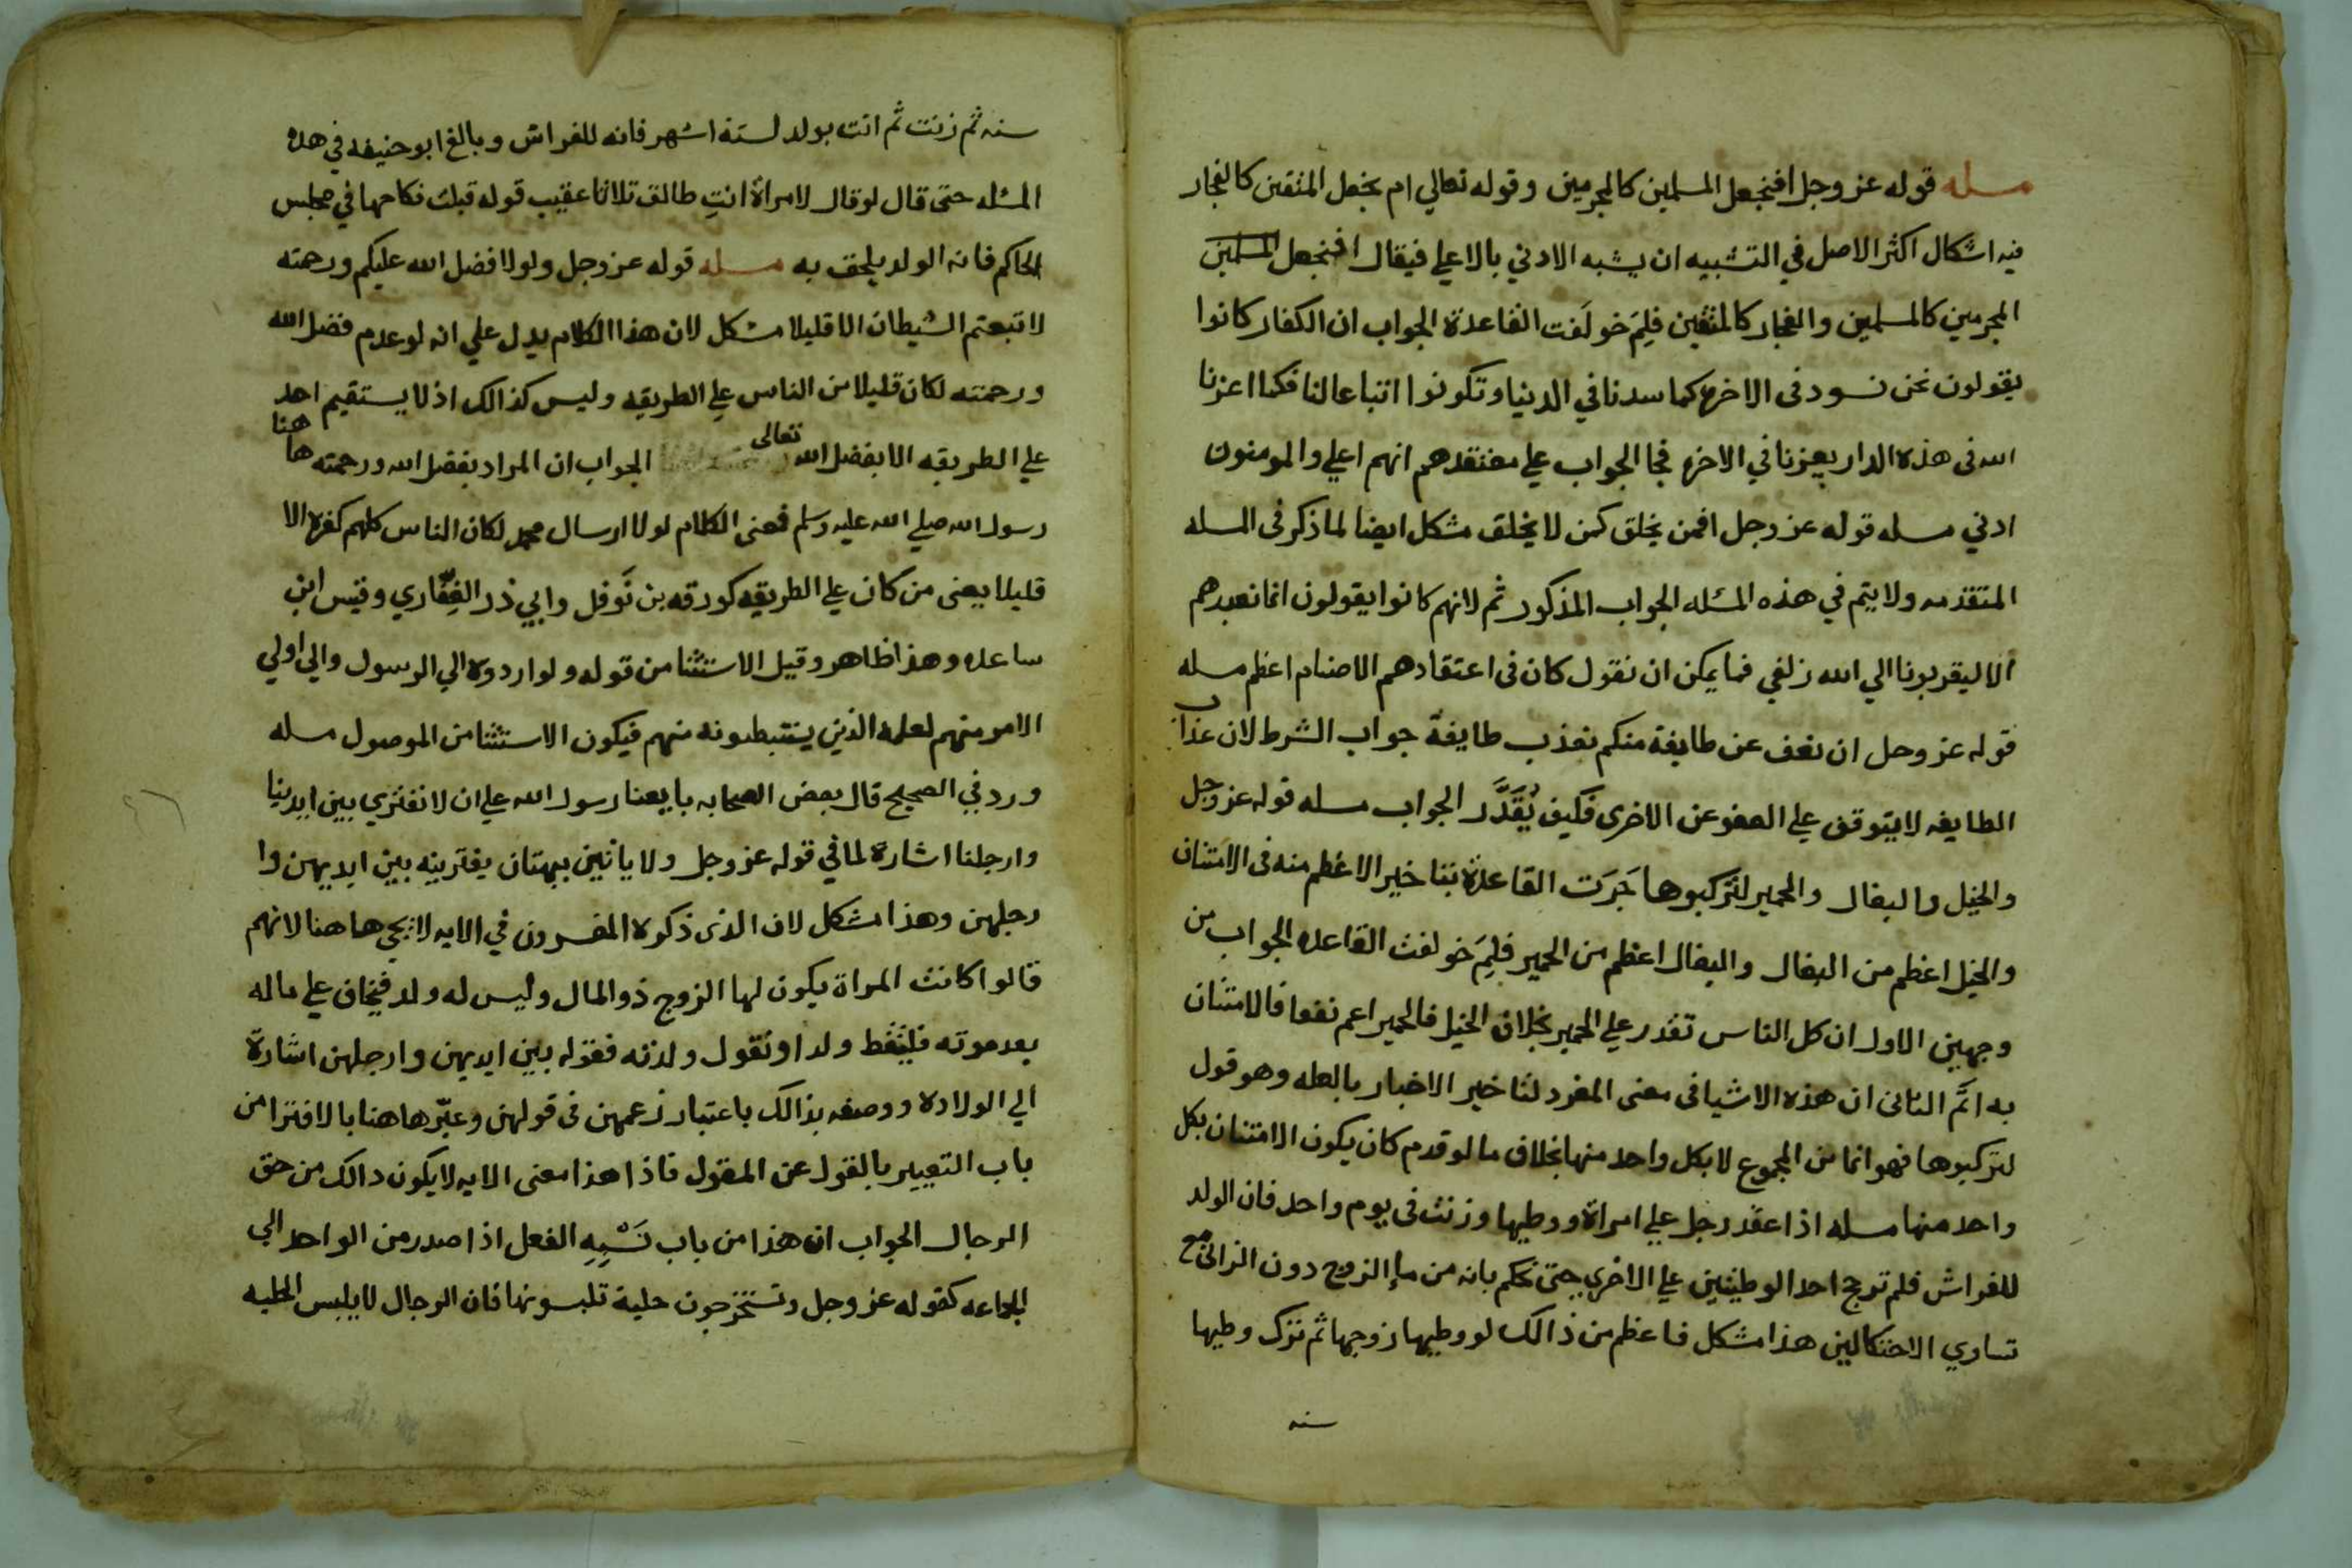 مسله قوله عز وجل افنجعل المسلمين كالمجرمين وقوله تعالي ام نجعل المتقين كالفجار
فيه اشكال اكثر الاصل في التشبيه ان يشبه الادني بالاعلي فيقال افنجعل المسلمين
المجرمين كالمسلمين والفجار كالمتقين فلِمَ خولَفت القاعدة الجواب ان الكفار كانوا
يقولون نحن نسود فى الاخره كما سدنا في الدنيا وتكونوا اتباعا لنا فكما اعزنا
الله فى هذه الدار يعزنا في الاخره فجا الجواب علي معتقدهم انهم اعلي والمومنون
ادني مسله قوله عز وجل افمن يخلق كمن لا يخلق مشكل ايضا لما ذكر فى المسله
المتقدمه ولا يتم في هذه المسٔله الجواب المذكور ثم لانهم كانوا يقولون انما نعبدهم
الا ليقربونا الي الله زلفي فما يمكن ان نقول كان فى اعتقادهم الاصنام اعظم مسله
قوله عز وجل ان نعف عن طايفة منكم نعذب طايفة جواب الشرط لان عذاب
الطايفه لا يتوقف علي العفو عن الاخرى فكيف يُقَدَّر الجواب مسله قوله عز وجل
والخيل والبغال والحمير لتركبوها جَرَت القاعدة بتاخير الاعظم منه فى الامتنان
والخيل اعظم من البغال والبغال اعظم من الحمير فلِمَ خولفت القاعده الجواب من
وجهين الاول ان كل الناس تقدر علي الحمير بخلاف الخيل فالحمير اعم نفعا فالامتنان
به اتَم الثانى ان هذه الاشيا فى معنى المفرد لتاخير الاخبار بالعله وهو قول
لتركبوها فهو انما من المجموع لا بكل واحد منها بخلاف ما لو قدم كان يكون الامتنان بكل
واحد منها مسله اذا عقد رجل علي امراة ووطيها وزنت فى يوم واحد فان الولد
للفراش فلم ترجح احد الوطيتين علي الاخري حتى نحكم بانه من ما الزوج دون الزانى مع
تساوي الاحتمالين هذا مشكل فاعظم من ذالك لو وطيها زوجها ثم ترك وطيها
سنه
سنه ثم زنت ثم اتت بولد لستة اشهر فانه للفراش وبالغ ابو حنيفه في هذه
المسٔله حتى قال لو قال لامراة انتِ طالق ثلاثا عقيب قوله قبلت نكاحها في مجلس
الحاكم فانه الولد يلحق به مسله قوله عز وجل ولولا فضل الله عليكم ورحمته
لاتبعتم الشيطان الا قليلا مشكل لان هذا الكلام يدل علي انه لو عدم فضل الله
ورحمته لكان قليلا من الناس علي الطريقه وليس كذالك اذ لا يستقيم احد
علي الطريقه الا بفضل الله تعالى الجواب ان المراد بفضل الله ورحمته ها هنا
رسول الله صلي الله عليه وسلم فمعنى الكلام لولا ارسال محمد لكان الناس كلهم كفره الا
قليلا يعنى من كان علي الطريقه كورقه بن نَوفل وابي ذر الغِفّاري وقيس ابن
ساعده وهذا ظاهر وقيل الاستثنا من قوله ولو اردوه الي الرسول والي اولي
الامر منهم لعلمه الذين يستنبطونه منهم فيكون الاستثنا من الموصول مسله
ورد في الصحيح قال بعض الصحابه بايعنا رسول الله علي ان لا نفتري بين ايدينا
وارجلنا اشارة لما في قوله عز وجل ولا ياتين ببهتان يفترينه بين ايديهن وا
رجلهن وهذا مشكل لان الذى ذكره المفسرون في الايه لا يجي هاهنا لانهم
قالوا كانت المراة يكون لها الزوج ذو المال وليس له ولد فيخاف علي ماله
بعد موته فتلتقط ولدا وتقول ولدته فقوله بين ايديهن وارجلهن اشارة
الي الولاده ووصفه بذالك باعتبار زعمهن فى قولهن وعبّر هاهنا بالافترا من
باب التعبير بالقول عن المقول فاذا هذا معنى الايه لا يكون دالك من حق
الرجال الجواب ان هذا من باب نَسْبِهِ الفعل اذا صدر من الواحد الي
الجماعه كقوله عز وجل وتستخرجون حلية تلبسونها فان الرجال لا يلبس الحليه